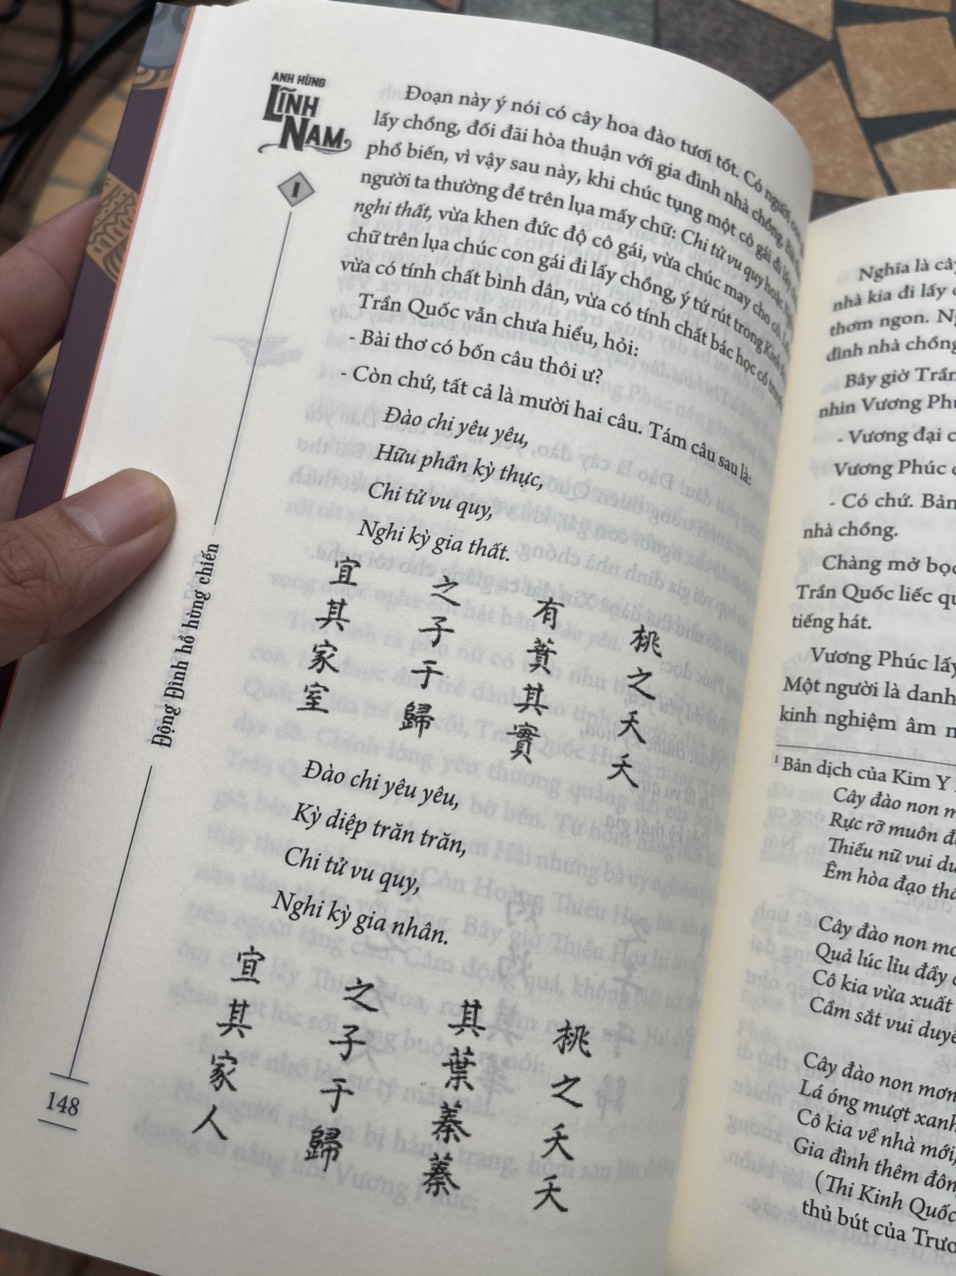 ANH HÙNG
LĨNH
NAM
I
Đoạn này ý nói có cây hoa đào tươi tốt. Có người con
lấy chồng, đối đãi hòa thuận với gia đình nhà chồng.
phổ biến, vì vậy sau này, khi chúc tụng một cô gái đi lấy
người ta thường đề trên lụa mấy chữ: Chi tử vu quy hoặc
nghi thất, vừa khen đức độ cô gái, vừa chúc may cho cô.
chữ trên lụa chúc con gái đi lấy chồng, ý tứ rút trong Kinh
vừa có tính chất bình dân, vừa có tính chất bác học
Trần Quốc vẫn chưa hiểu, hỏi:
- Bài thơ có bốn câu thôi ư?
- Còn chứ, tất cả là mười hai câu. Tám câu sau là:
Đào chi yêu yêu,
Hữu phần kỳ thực,
Chi tử vu quy,
Nghi kỳ gia thất.
桃之夭夭
有蕡其實
之子于歸
宜其家室
Đào chi yêu yêu,
Kỳ diệp trăn trăn,
Chi tử vu quy,
Nghi kỳ gia nhân.
桃之夭夭
其葉蓁蓁
之子于歸
宜其家人
Động Đình hồ hùng chiến
148
Nghĩa là cây
nhà kia đi lấy
thơm ngon.
đình nhà chồng
Bây giờ Trần
nhìn Vương Phú
- Vương đại
Vương Phúc
- Có chứ. Bản
nhà chồng.
Chàng mở bọc
Trần Quốc liếc
tiếng hát.
Vương Phúc lấy
Một người là danh
kinh nghiệm âm
1 Bản dịch của Kim Y
Cây đào non
Rực rỡ muôn
Thiếu nữ vui
Êm hòa đạo
Cây đào non
Quả lúc lỉu đầy
Cô kia vừa xuất
Cầm sắt vui duyê
Cây đào non mơn
Lá óng mượt xanh
Cô kia về nhà mới,
Gia đình thêm đôn
(Thi Kinh Quốc
thủ bút của Trươ